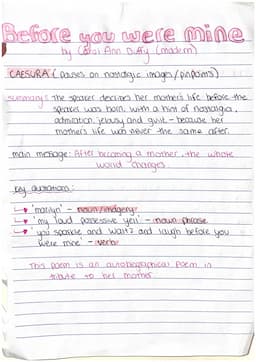 Before you were mine
by Carol Ann Duffy (modern)
CAESURA (pauses on nostalgic images/pinpoints)
summary: The speaker describes her mother's life before the
speaker was born, with a hint of nostalgia,
admiration, jelousy and guilt - because her
mother's life was never the same after.
main message: After becoming a mother, the whole
world changes.
Key quotations:
'marilyn' - noun/imagery
'my loud possessive yell' - noun phrase
'you sparkle and waltz and laugh before you
were mine' - verb
This poem is an autobiographical poem in
tribute to her mother